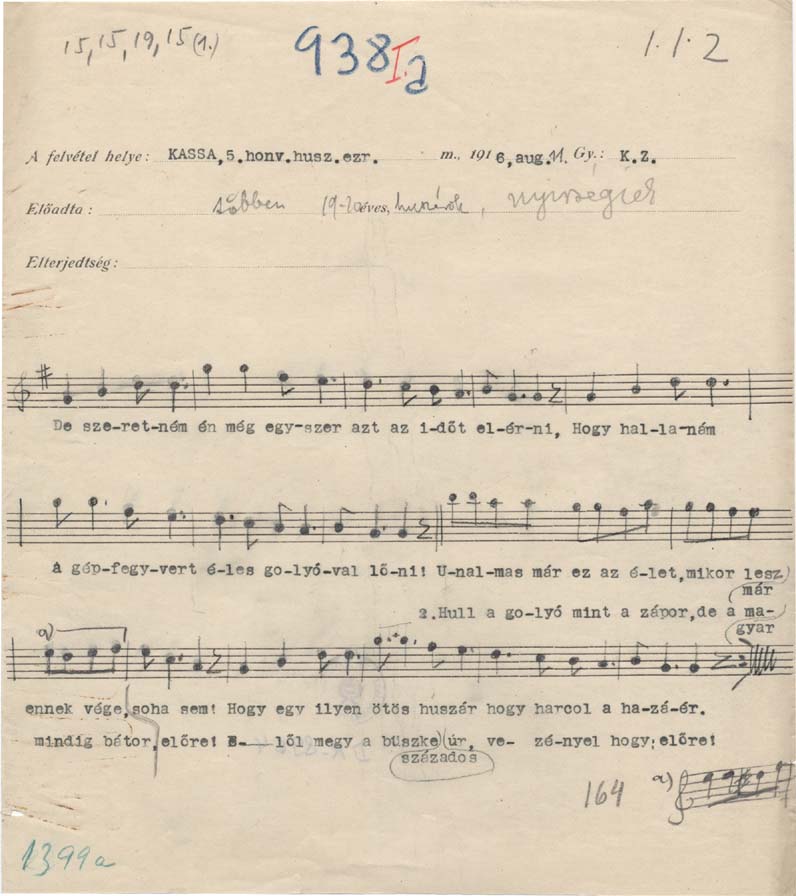 15,15,19,15(1.) 938 I.a 1.1.2
A felvétel helye: KASSA,5.honv.husz.ezr. m., 1916,aug.11. Gy.: K.Z.
Előadta: többen 19-20 éves, huszárok, nyírségiek
Elterjedtség:
De sze-ret-ném én még egy-szer azt az i-dőt el-ér-ni, Hogy hal-la-nám
A gép-fegy-vert é-les go-lyó-val lő-ni! U-nal-mas már ez az é-let,mikor lesz
már
2.Hull a go-lyó mint a zápor,de a ma-
gyar
a)
ennek vége,soha sem! Hogy egy ilyen ötös huszár hogy harcol a ha-zá-ér.
mindig bátor,előre! E- lől megy a büszke úr, ve- zé-nyel hogy;előre!
százados
164 a)
1399a